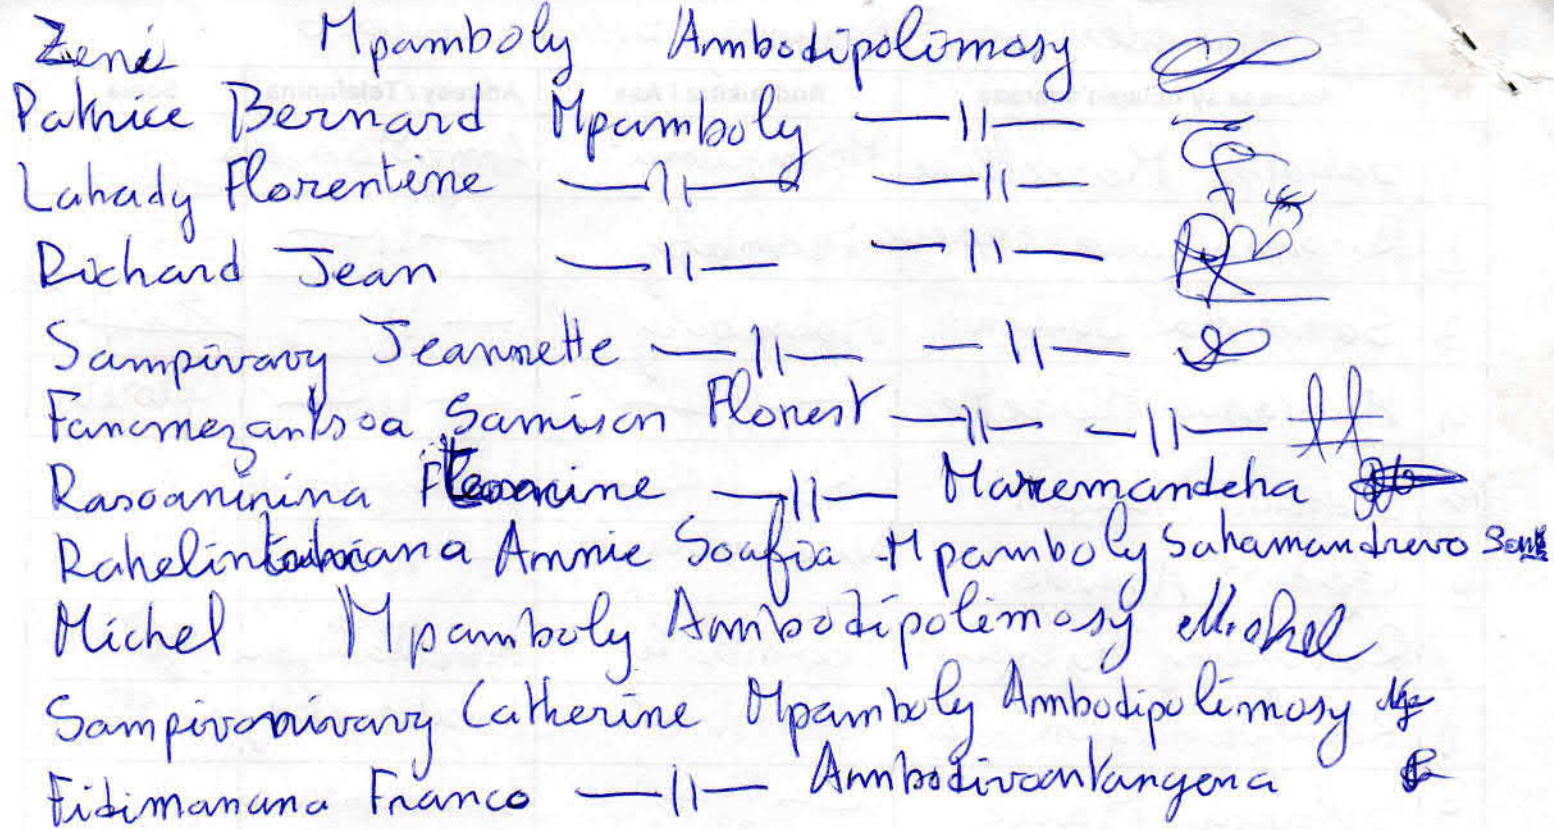 Zené Mpamboly Ambodipolimosy
Patrice Bernard Mpamboly —||—
Lahady Florentine —||— —||—
Richard Jean —||— —||—
Sampivavy Jeannette —||— —||—
Fanomezantsoa Samison Florest —||— —||—
Rasoaninina —||— Maremandeha
Annie Soafia Mpamboly Sahamandrevo
Michel Mpamboly Ambodipolimosy Michel
Sampivonivavy Catherine Mpamboly Ambodipolimosy
Fidimanana Franco —||— Ambodivoantangena